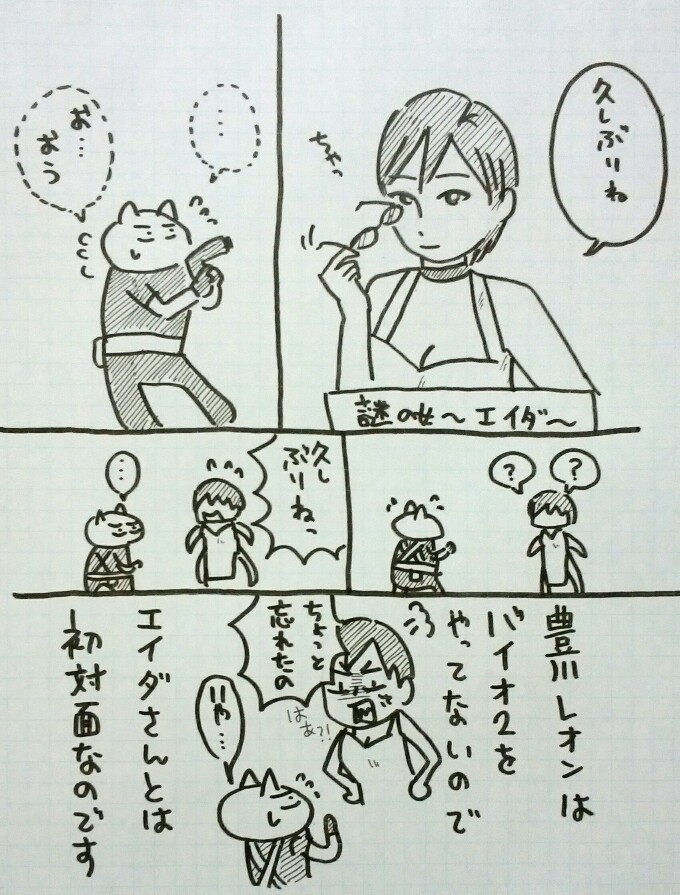 久しぶりね
チャッ
謎の女〜エイダ〜
…
お…
おう
?
?
久し
ぶりねっ
…
豊川レオンは
バイオ2を
やってないので
ちょっと
忘れたの
はぁ?!
いや…
エイダさんとは
初対面なのです